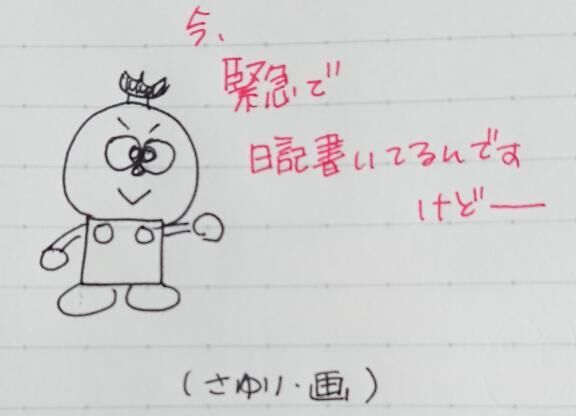 今、
緊急で
日記書いてるんです
けどー
(さゆり・画)